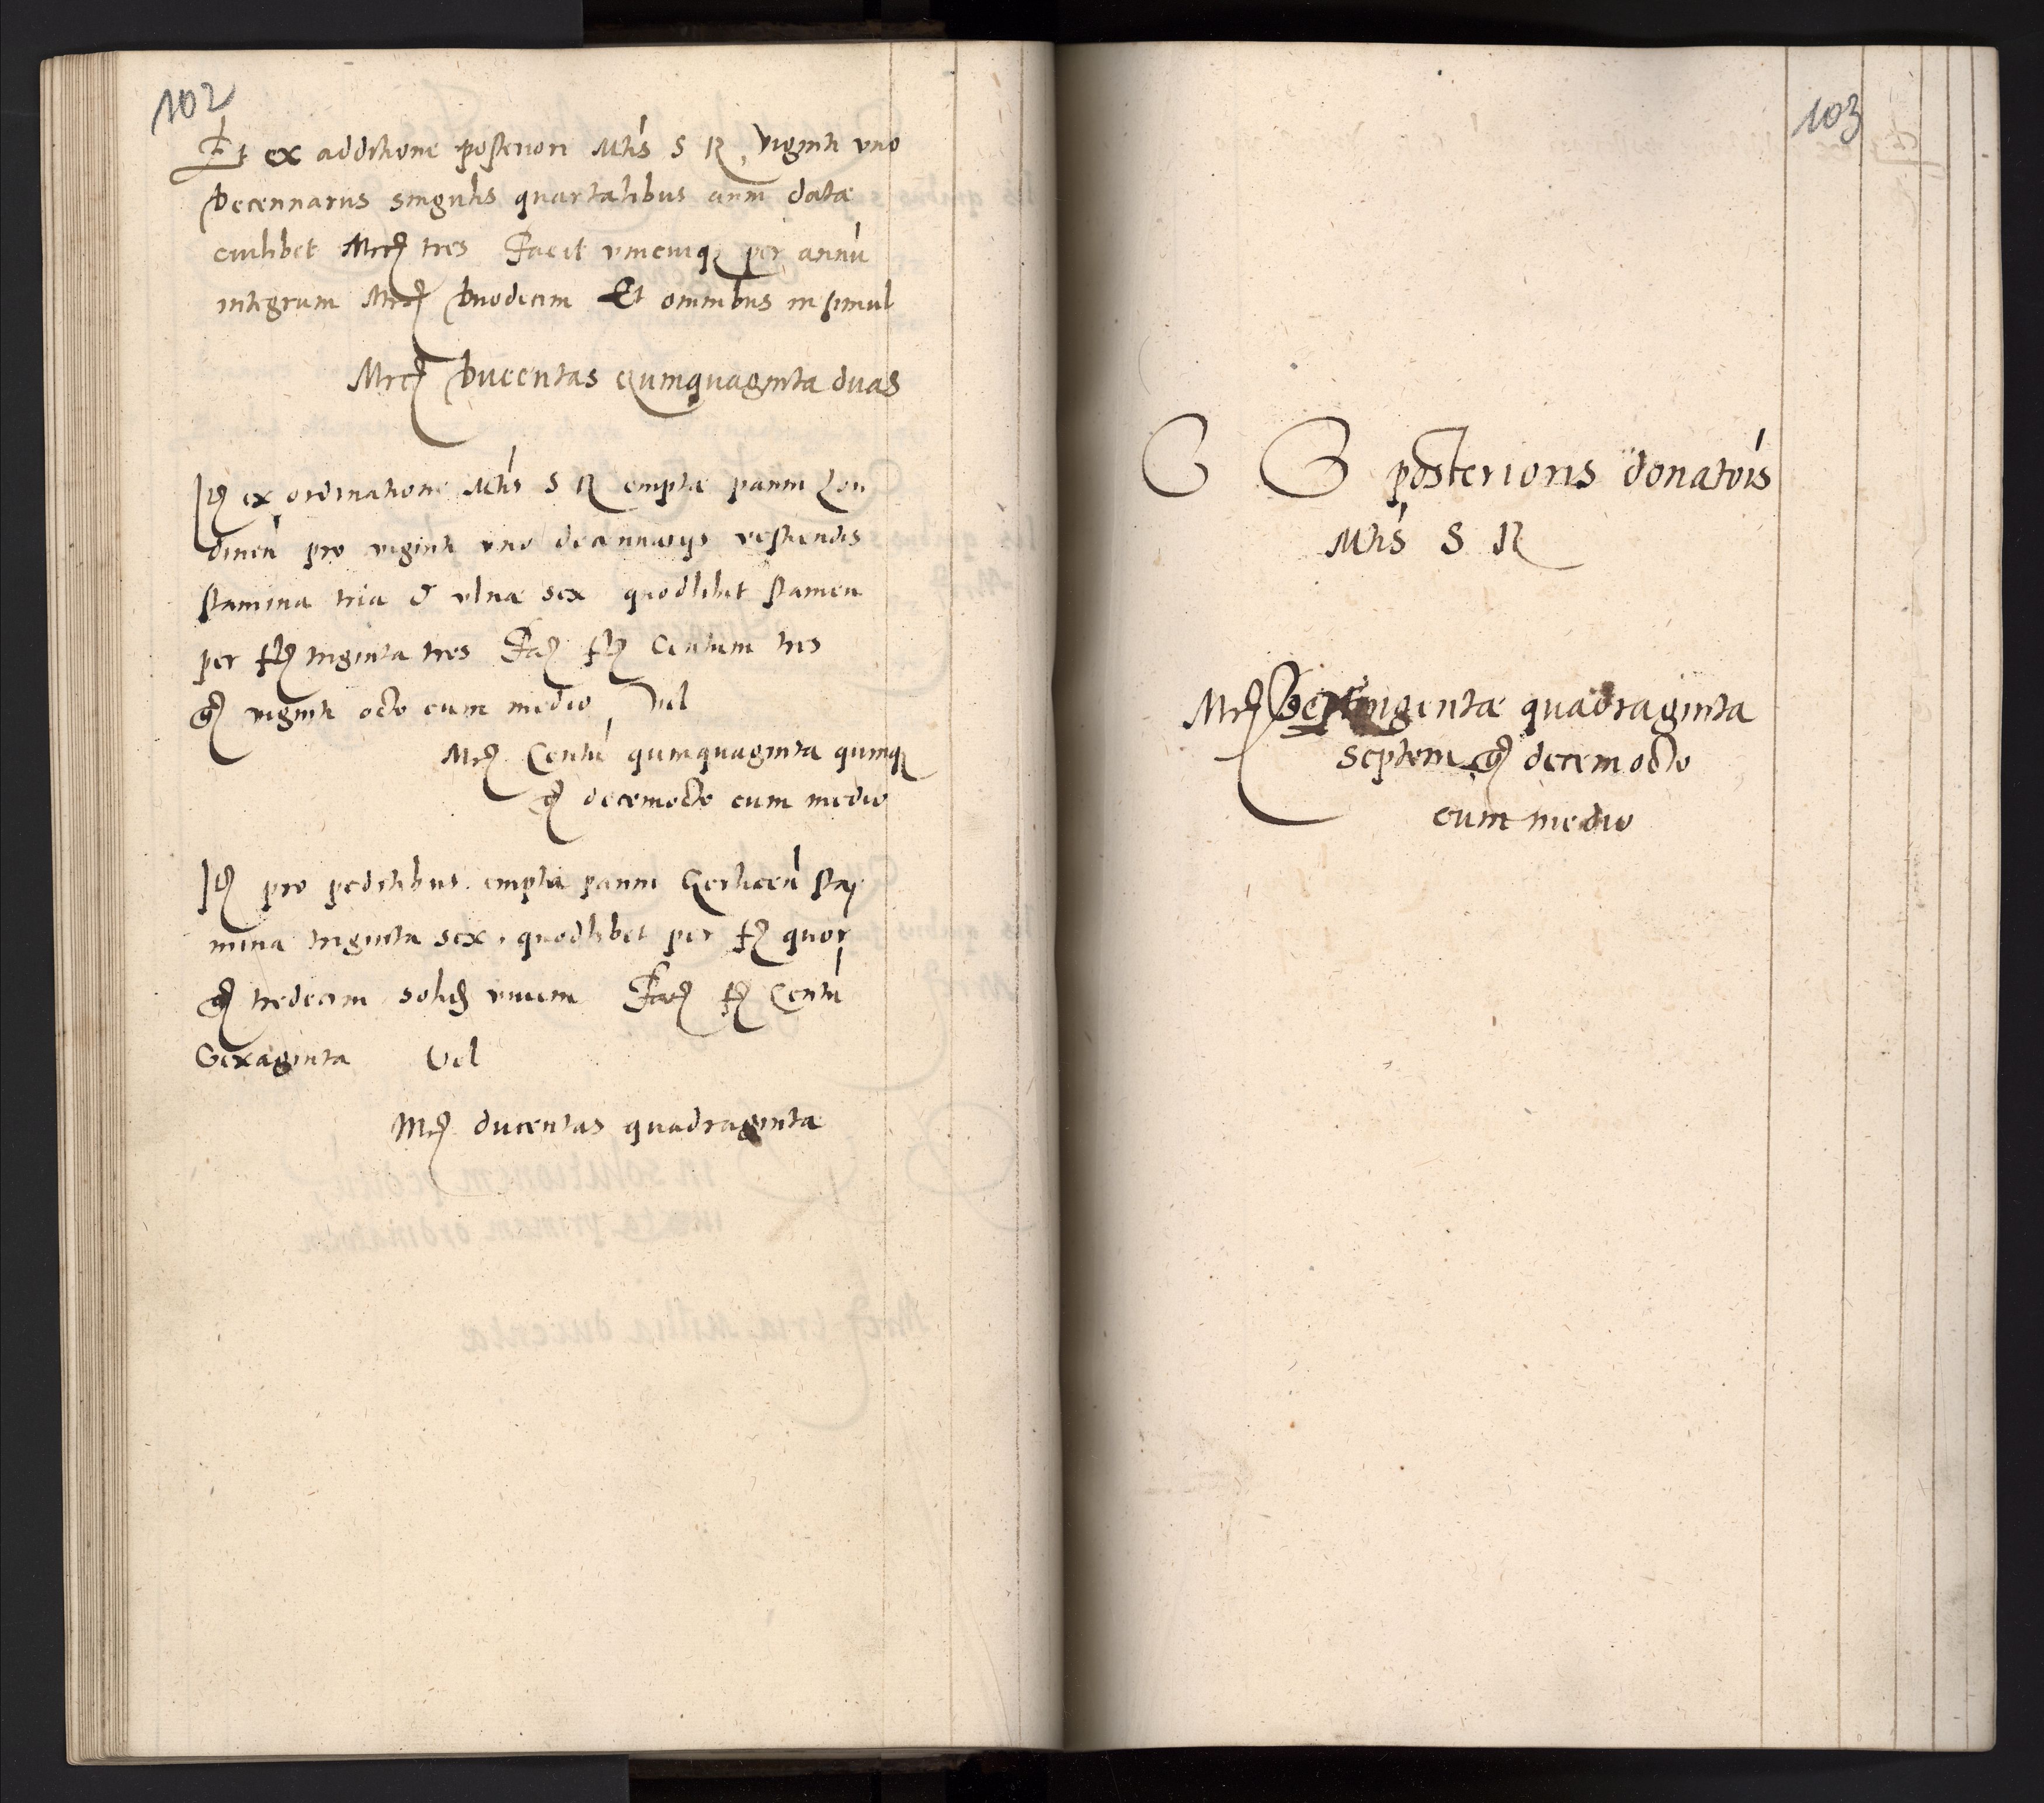 102
Et ex additione posteriori Mtis S R, viginti uno
Decennariis singulis quartalibus anni datæ
cuilibet Mrcę tres Facit unicuiqȝ per annū
integrum Mrcę Duodecim Et omnibus in simul
Mrcę Ducentas Quinquaginta duas
Itę ex ordinatione Mtis S R emptæ panni Lon
dineń pro viginti uno decannarijs vestiendis
stamina tria & ulnæ sex quodlibet stamen
per fłę triginta tres Facę fłę Centum tres
gę viginti octo cum medio, Vel
Mrcę Centū quinquaginta quinqȝ
gę decemocto cum medio
Itę pro peditibus empta panni Gerliceń sta-
mina triginta sex, quodlibet per fłę quor
gę tredecim solidę unum Facę fłę Centū
Sexaginta Vel
Mrcę ducentas quadraginta
103
S S posterioris donatōis
Mtis S R
Mrcę quadraginta
septem gę decemocto
cum medio